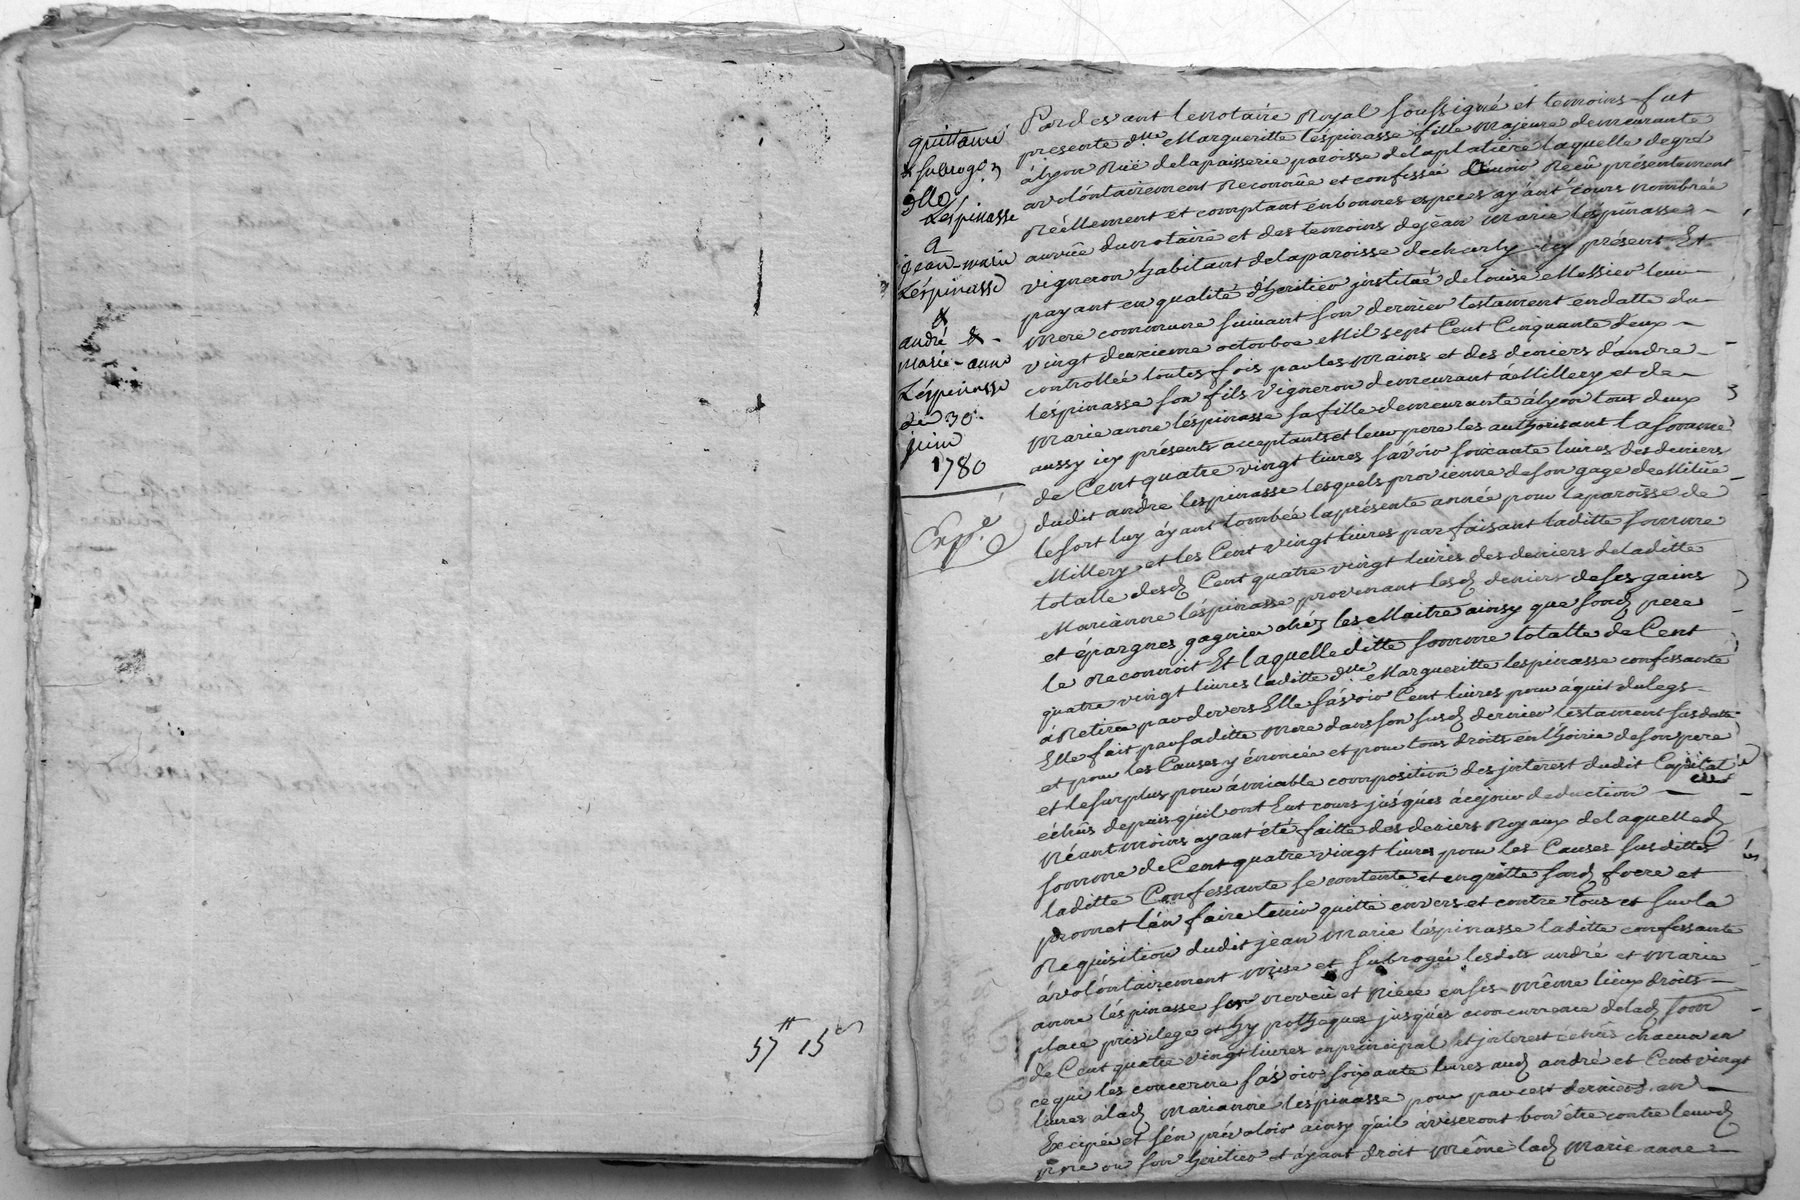 57 ₶ 15 s
quittance
& subrog.on
dlle
Lespinasse
a
jean-marie
Lespinasse
&
andré & -
marie-anne
Lespinasse
du 30.
juin
1780
Exp.é
Pardevant le notaire Royal soussigné et temoins fut
presente d.lle Margueritte Lespinasse fille majeure demeurante
à lyon Ruë de la paisserie paroisse de la platière laquelle de gré
a volóntairement Reconnüe et confessée d'avoir Reçû présentement
Réellement et comptant en bonnes especes ayant cours nombrée
au vüe du notaire et des temoins de jean Marie Lespinasse -
vigneron habitant de la paroisse de charly icy présent Et
payant en qualité d'heritier institué de Louise Messier leur
mere commune suivant son dernier testament en datte du -
vingt deuxieme octonbre Mil sept Cent Cinquante deux -
controllée toutes fois par les mains et des deniers d'andre -
lespinasse son fils vigneron demeurant à Millery et de -
Marie anne lespinasse sa fille demeurante à lyon tous deux
aussy icy présents acceptants et leur pere les authorisant la somme
de Cent quatre vingt livres sávoir soixante livres des deniers
dudit andre lespinasse lesquels provienne de son gage de Milice
le sort luy áyant tombée la présente année pour la paroisse de
Millery et les Cent vingt livres parfaisant laditte somme
totalle desd Cent quatre vingt livres des deniers de laditte
Marianne lespinasse provenant lesd deniers de ses gains
et épargnes gagnier chéz les Maitre ainsy que sond pere
le reconnoit Et laquelle ditte somme totalle de Cent
quatre vingt livres laditte d.lle Margueritte lespinasse confessante
á Retirée par devers Elle sávoir Cent livres pour áquit du legs -
Elle fait par saditte Mere dans son susd dernier testament susdatté
et pour les Causes y énoncée et pour tous droits en l'hoirie de son pere
et le surplus pour ámiable composition des jnterest dudit Capital
échûs depuis quil ont Eut cours jusqúes à ce jour deduction -
Néantmoins ayant été faitte des deniers Royaux de laquelle d
somme de Cent quatre vingt livres pour les Causes susdittes
laditte Confessante se contente et en quitte sond frere et
promet l'én faire tenir quitte envers et contre tous et sur la
Requisition dudit jean Marie lespinasse laditte confessante
á volóntairement mise et subrogée lesdits andré et Marie
anne léspinasse son neveu et niéce en ses même lieux droits -
place privilege et hypotheques jusqúes a concurrence de lad som
de Cent quatre vingt livres en principal et jnterest échûs chacun en
ce qui les concerne sávoir soixante livres aud andré et Cent vingt
livres à lad Marianne lespinasse pour par cest derniers en -
Excipér et s'én préváloir ainsy qúil áviseront bon être contre leurd
pere ou son heritier et áyant droit même lad Marie anne -